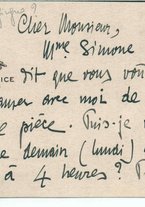 Cher Monsieur,
Mme Simone
dit que vous vou
auser avec moi de
pièce. Puis-je v
demain (lundi)
à 4 heures?